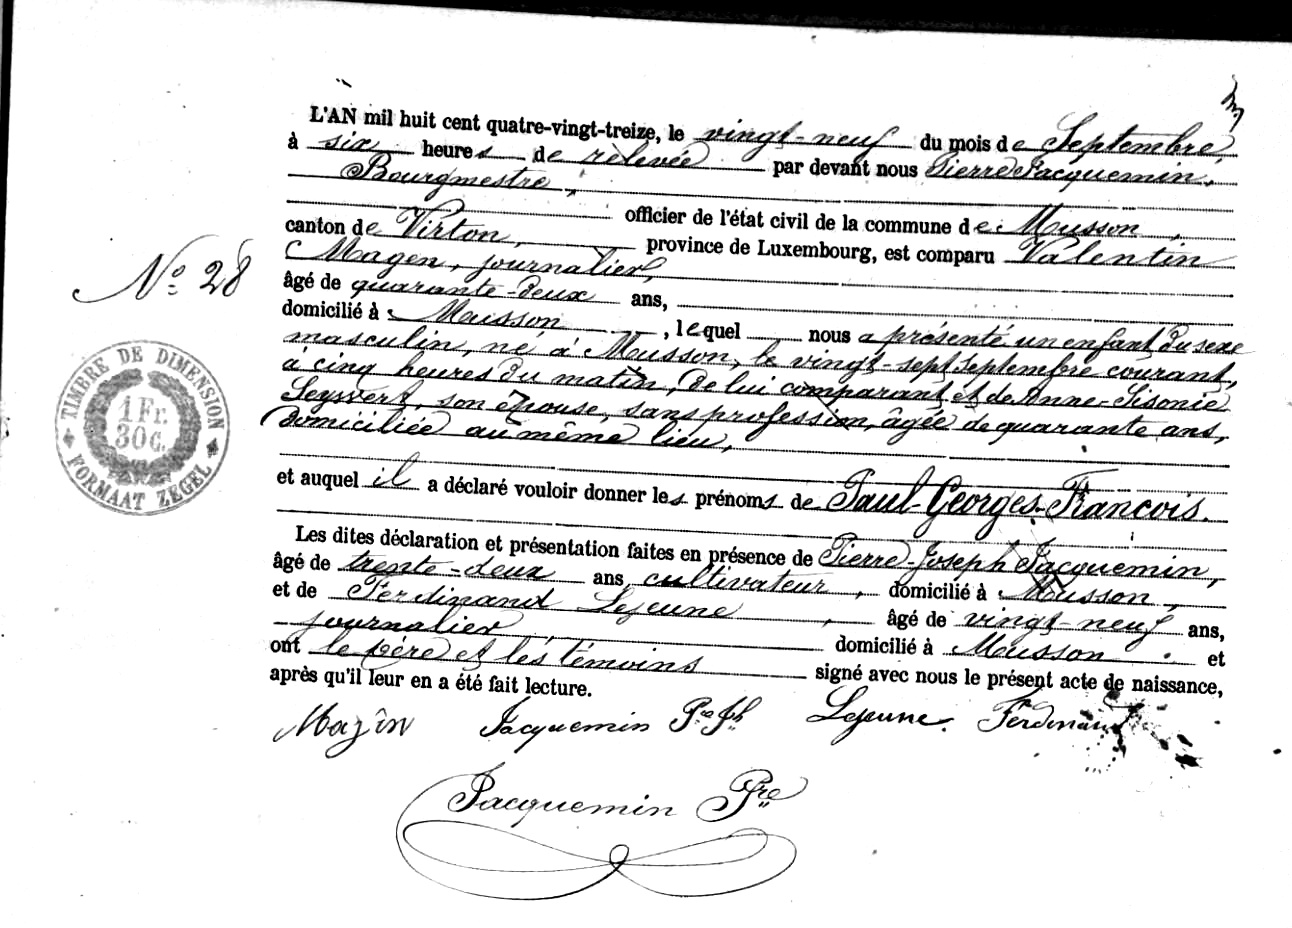 L'AN mil huit cent quatre-vingt-treize, le vingt-neuf du mois de Septembre,
à six heures de relevée par devant nous Pierre Jacquemin,
Bourgmestre,
officier de l'état civil de la commune de Musson,
canton de Virton, province de Luxembourg, est comparu Valentin
Magen, journalier,
âgé de quarante-deux ans,
domicilié à Musson, lequel nous a présenté un enfant du sexe
masculin, né à Musson, le vingt-sept Septembre courant,
à cinq heures du matin, de lui comparant et de Anne-Sisonie
Seyvert, son épouse, sans profession, âgée de quarante ans,
domiciliée au même lieu,
et auquel il a déclaré vouloir donner les prénoms de Paul-Georges-François.
Les dites déclaration et présentation faites en présence de Pierre-Joseph Jacquemin,
âgé de trente-deux ans, cultivateur, domicilié à Musson,
et de Ferdinand Lejeune, âgé de vingt-neuf ans,
journalier, domicilié à Musson. et
ont le père et les témoins signé avec nous le présent acte de naissance,
après qu'il leur en a été fait lecture.
Majîn Jacquemin Pre Jh Lejeune. Ferdinand
Jacquemin Pre
No 28
TIMBRE DE DIMENSION
1 Fr.
30 C.
FORMAAT ZEGEL